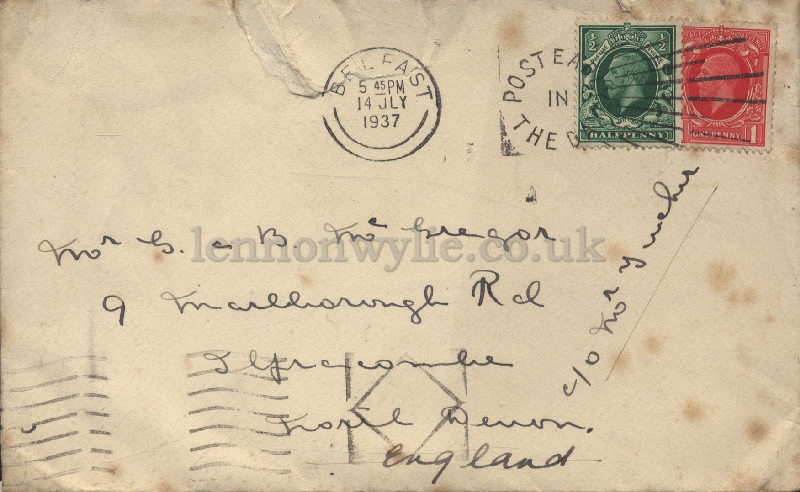 BELFAST
5 45PM
14 JLY
1937
POST EA
IN
THE D
1/2 1/2
HALFPENNY
ONE PENNY 1
lennonwylie.co.uk
Mr G. & B. McGregor
9 Marlborough Rd
Ilfracombe
North Devon.
England
c/o Mrs